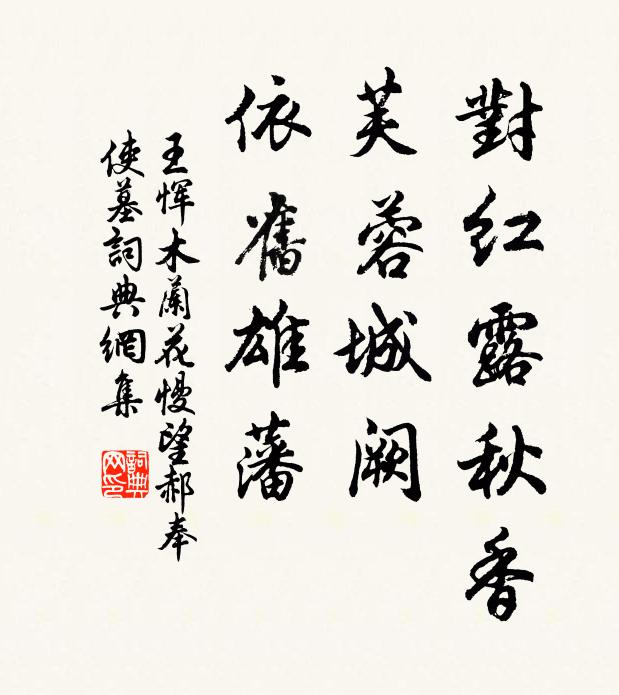 對紅露秋香
芙蓉城闕
依舊雄藩
王惲木蘭花慢望郝奉
使墓詞典網集
詞典
网印